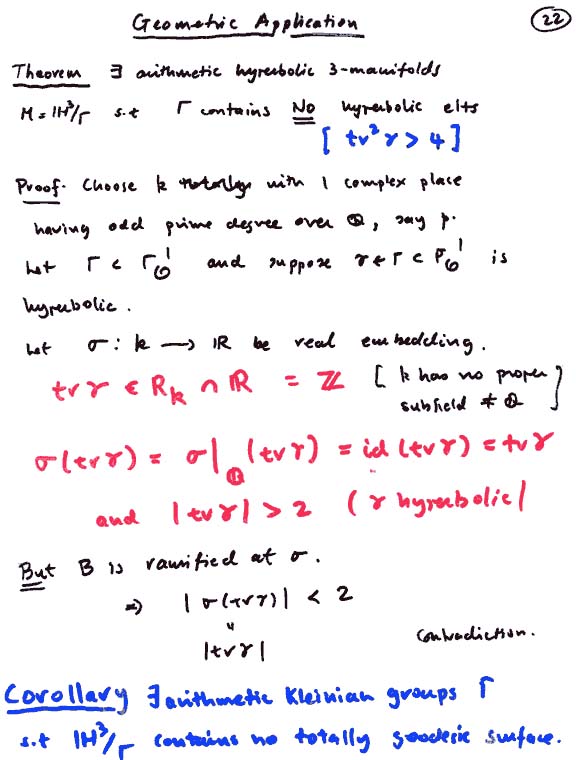 Geometric Application
22
Theorem ∃ arithmetic hyperbolic 3-manifolds
M = ℍ³/Γ s.t Γ contains No hyperbolic elts
[ tr²γ > 4 ]
Proof. Choose k with 1 complex place
having odd prime degree over ℚ, say p.
Let Γ ⊂ Γ_𝒪^1 and suppose γ ∈ Γ ⊂ Γ_𝒪^1 is
hyperbolic.
Let σ : k → ℝ be real embedding.
tr γ ∈ R_k ∩ ℝ = ℤ [ k has no proper
subfield ≠ ℚ ]
σ(tr γ) = σ|_ℚ (tr γ) = id (tr γ) = tr γ
and |tr γ| > 2 (γ hyperbolic)
But B is ramified at σ.
⇒ |σ(tr γ)| < 2
"
|tr γ| Contradiction.
Corollary ∃ arithmetic Kleinian groups Γ
s.t ℍ³/Γ contains no totally geodesic surface.